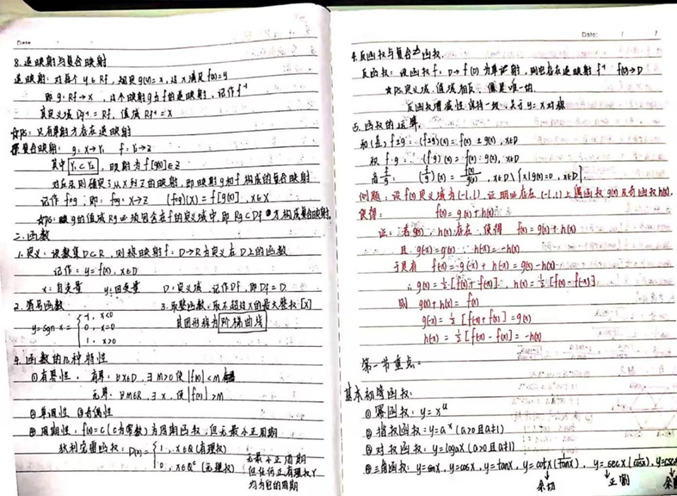 8. 逆映射与复合映射
逆映射: 对每个 y∈Rf, 规定 g(y)=x, 这x满足 f(x)=y
即 g: Rf→X, 这个映射g为f的逆映射, 记作 f⁻¹
其定义域 Df⁻¹=Rf, 值域 Rf⁻¹=X
只有单射才存在逆映射
复合映射: g: X→Y₁ f: Y₂→Z
其中 Y₁⊂Y₂, 映射为 f[g(x)]∈Z
对应法则确定了从X到Z的映射, 即映射g和f构成的复合映射
记作 f∘g, 即: f∘g: X→Z (f∘g)(x)=f[g(x)], x∈X
g的值域Rg必须包含在f的定义域中, 即 Rg⊂Df 才构成复合映射
二. 函数
1. 定义: 设数集D⊂R, 则称映射 f: D→R为定义在D上的函数
记作: y=f(x), x∈D
x: 自变量 y: 因变量 D: 定义域, 记作Df, 即Df=D
2. 符号函数 3. 取整函数: 取不超过x的最大整数 [x]
y=sgn x= { -1, x<0
0, x=0
1, x>0
其图形称为 阶梯曲线
4. 函数的几种特性
①有界性. 有界: ∀x∈D, ∃M>0, 使|f(x)|<M
无界: ∀M∈R, ∃x, 使|f(x)|>M
②单调性 ③奇偶性
④周期性: f(x)=C (C为常数) 为周期函数, 但无最小正周期
狄利克雷函数: D(x)= { 1, x∈Q (有理数)
0, x∈Qᶜ (无理数)
无最小正周期
但任何正有理数r
均为它的周期
4. 反函数与复合函数.
反函数: 设函数 f: D→f(D) 为单射, 则它存在逆映射 f⁻¹: f(D)→D
定义域, 值域相反
关于y=x对称
5. 函数的运算.
和(差) f±g: (f±g)(x)=f(x)±g(x), x∈D
积 f·g: (f·g)(x)=f(x)·g(x), x∈D
商 f/g: (f/g)(x)=f(x)/g(x), x∈D\{x|g(x)=0, x∈D}
例题: 设f(x)定义域为(-l,l), 证明必存在(-l,l)上偶函数g(x)及奇函数h(x),
使得: f(x)=g(x)+h(x)
证: 若g(x), h(x)存在, 使得 f(x)=g(x)+h(x)
且 g(-x)=g(x) h(-x)=-h(x)
于是有 f(-x)=g(-x)+h(-x)=g(x)-h(x)
∴ g(x)=½[f(x)+f(-x)], h(x)=½[f(x)-f(-x)]
则 g(x)+h(x)=f(x)
g(-x)=½[f(-x)+f(x)]=g(x)
h(-x)=½[f(-x)-f(x)]=-h(x)
第一节重点:
基本初等函数:
①幂函数: y=xᵘ
②指数函数: y=aˣ (a>0且a≠1)
③对数函数: y=logₐx (a>0且a≠1)
④三角函数: y=sinx, y=cosx, y=tanx, y=cotx (1/tanx), y=secx (1/cosx), y=cscx
余切 正割